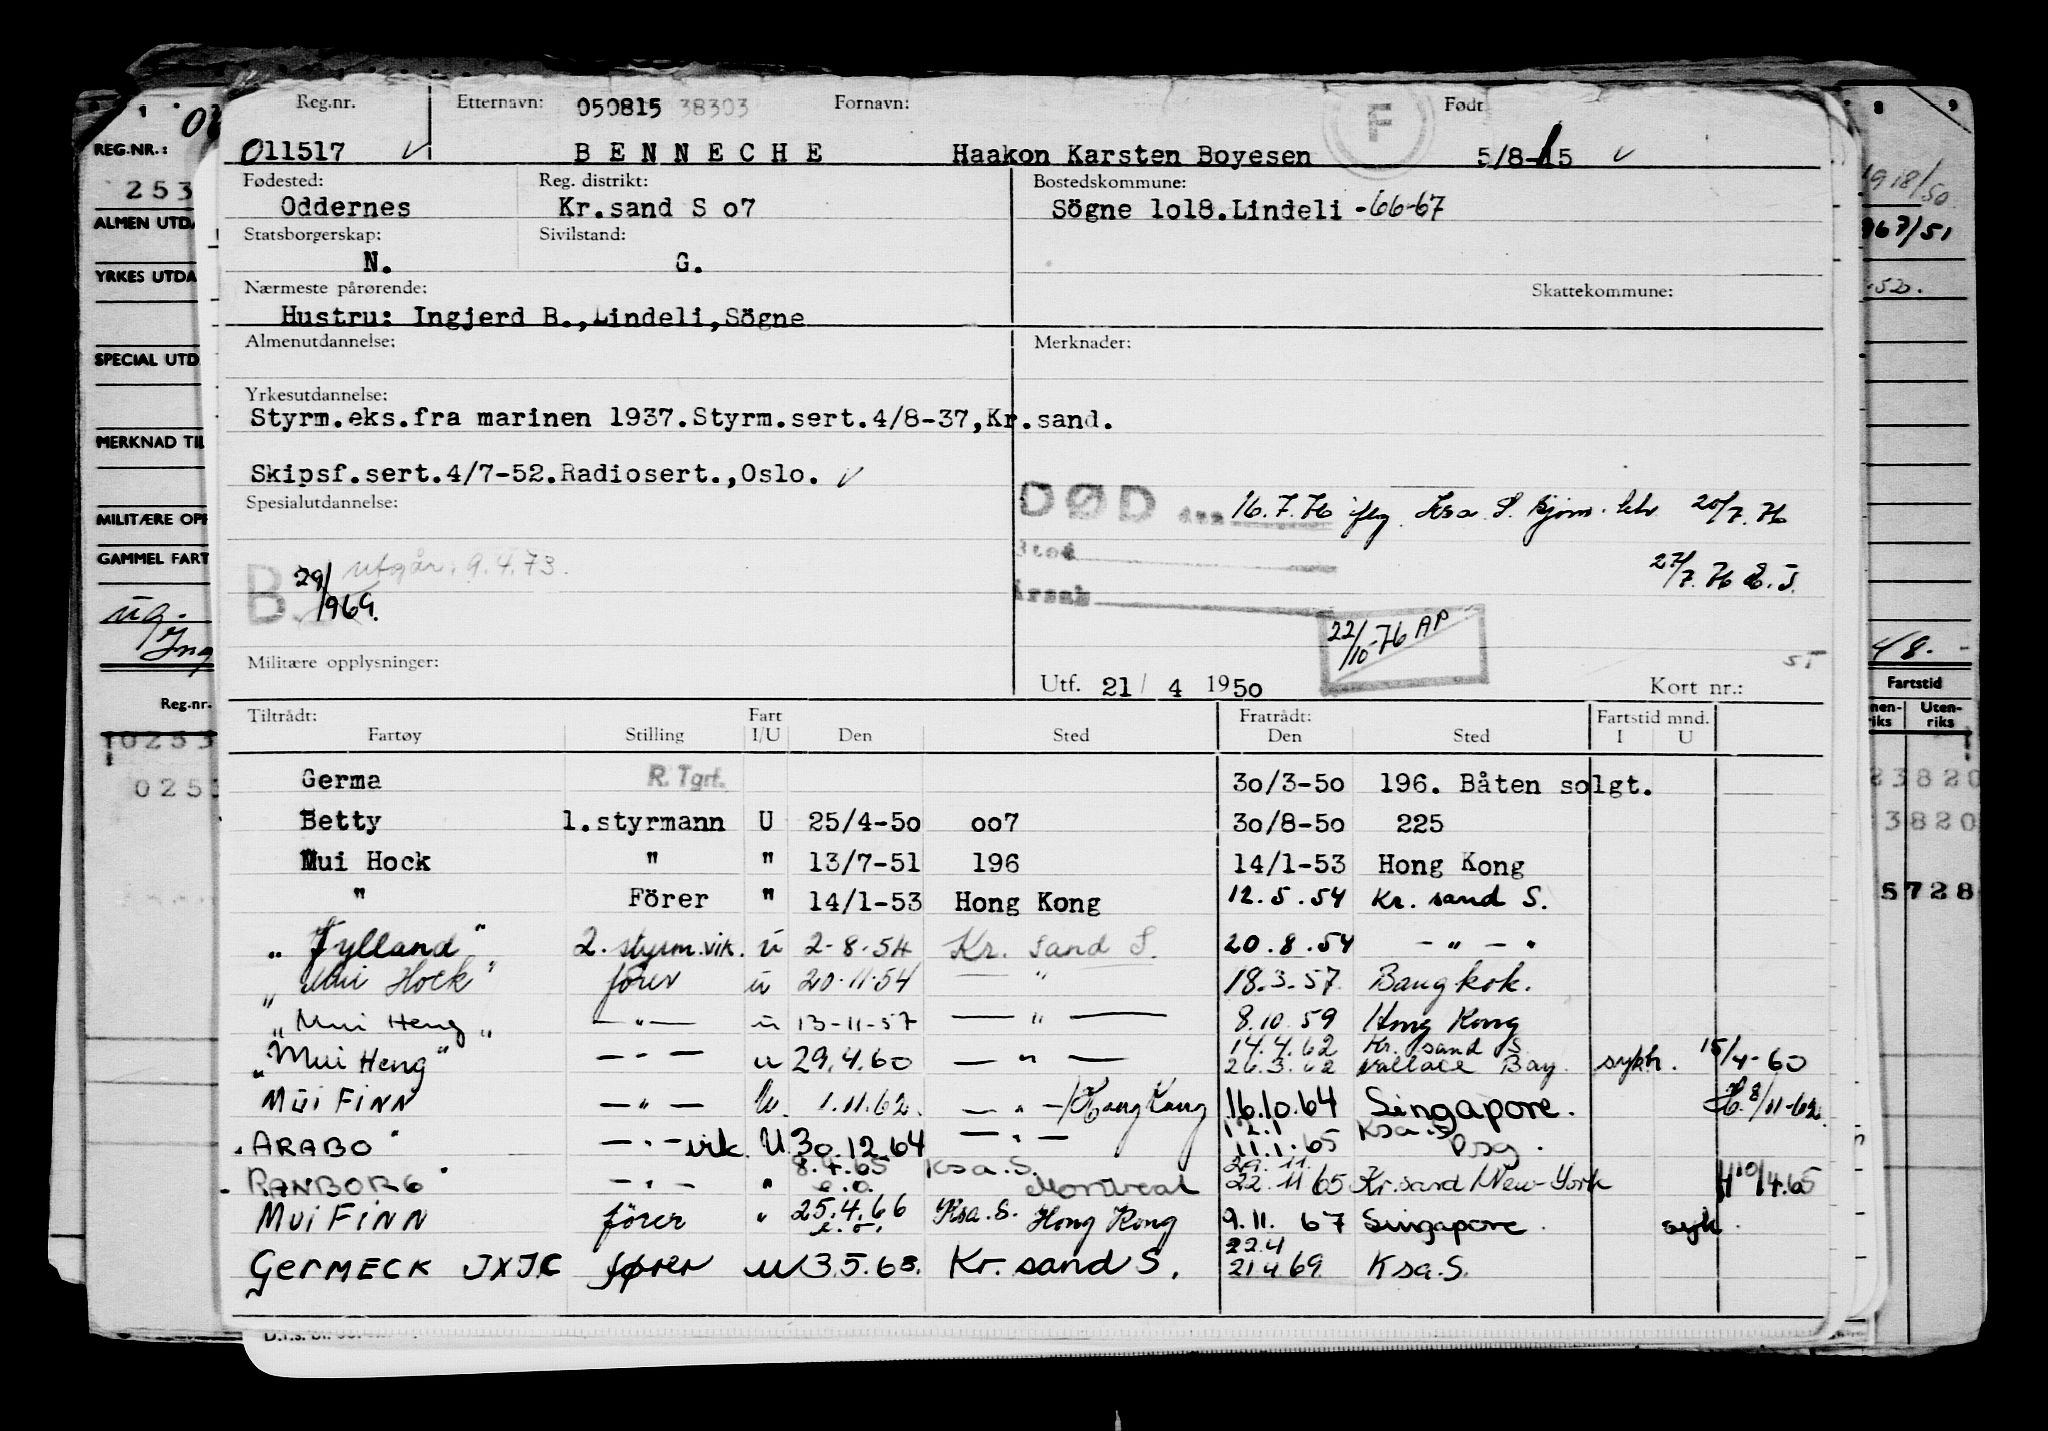 Reg.nr. Etternavn: 050815 38303 Fornavn: F Født
011517 BENNECHE Haakon Karsten Boyesen 5/8-15
Fødested: Reg. distrikt: Bostedskommune:
Oddernes Kr.sand S o7 Sögne 1o18.Lindeli -66-67
Statsborgerskap: Sivilstand:
N. G.
Nærmeste pårørende: Skattekommune:
Hustru: Ingjerd B.,Lindeli,Sögne
Almenutdannelse: Merknader:
Yrkesutdannelse:
Styrm.eks.fra marinen 1937.Styrm.sert.4/8-37,Kr.sand.
Skipsf.sert.4/7-52.Radiosert.,Oslo.
Spesialutdannelse: DØD den 16.7.76 iflg. Ksa S. 20/7.76
Sted
utgår. 9.4.73. 27/7.76
B 29/1969. Årsak
22/10-76 AP
Militære opplysninger: ST
Utf. 21/ 4 1950 Kort nr.:
Tiltrådt: Fart Fratrådt: Fartstid mnd.
Fartøy Stilling I/U Den Sted Den Sted I U
Germa R.Tgrf. 3o/3-50 196. Båten solgt.
Betty 1.styrmann U 25/4-5o oo7 3o/8-50 225
Mui Hock " " 13/7-51 196 14/1-53 Hong Kong
" Förer " 14/1-53 Hong Kong 12.5.54 Kr. sand S.
"Jylland" 2. styrm.vik. u 2-8-54 Kr. Sand S. 20.8.54 - " - "
"Mui Hock" förer u 20-11-54 — " 18.3.57 Bangkok.
"Mui Heng" — " — u 13-11-57 — " — 8.10.59 Hong Kong
14.4.62 Kr. sand S.
"Mui Heng" — " — u 29.4.60 — " — 26.3.62 Wallace Bay. sykh. 15/4-60
MUI FINN — " — U. 1.11.62. — " — /Hong Kong 16.10.64 Singapore. H.8/11-62.
12.1 Ksa.S
"ARABO" — " — vik. U 30.12.64 — " — 11.1.65 Psg.
8.4.65 Ksa.S. 29.11.
"RANBORG" — " — " e.o. Montreal 22.11 65 Kr.sand/New-York H10/4.65
MUI FINN förer " 25.4.66 e.o. Ksa.S. Hong Kong 9.11. 67 Singapore. syk.
22.4
GERMECK JXJC fører u 3.5.68. Kr. sand S. 21.4.69. Ksa.S.
REG.NR.:
253
ALMEN UTDA
YRKES UTDA
SPECIAL UTD
MERKNAD TIL
MILITÆRE OPP
GAMMEL FART
ug.
Ing
Reg.nr.
0253
025
8 9
1918/50
967/51
48. -
Fartstid
Uten-
riks riks
23820
3820
5728